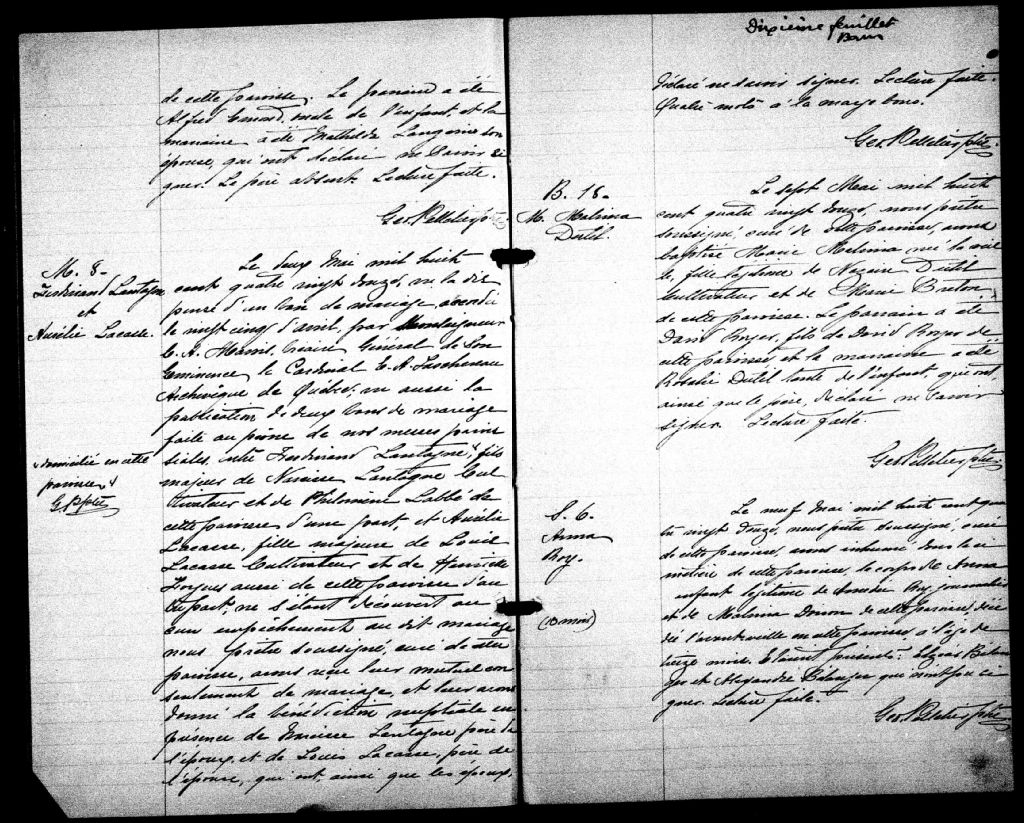 de cette paroisse. Le parrain a été
Alfred Emond, oncle de l'enfant, et la
marraine a été Mathilde Langevin son
épouse, qui ont déclaré ne savoir si
gner. Le père absent. Lecture faite.
Geo. Pelletier Ptre
M. 8-
Ferdinand Lantagne
et
Aurélie Lacasse.
Le deux Mai mil huit
cent quatre vingt douze, vu la dis
pense d'un ban de mariage, accordée
le vingt cinq d'avril, par Monseigneur
C. A. Marois, Vicaire Général de Son
Eminence le Cardinal E. A. Taschereau
Archevêque de Québec, vu aussi la
publication de deux bans de mariage
faite au prône de nos messes parois
siales, entre Ferdinand Lantagne, fils
majeur de Narcisse Lantagne Cul
tivateur et de Philomène Labbé de
cette paroisse d'une part, et Aurélie
Lacasse, fille majeure de Louis
Lacasse Cultivateur et de Henriette
Forgues aussi de cette paroisse d'au
tre part, ne s'étant découvert au
cun empêchement au dit mariage
nous Prêtre soussigné, curé de cette
paroisse, avons reçu leur mutuel con
sentement de mariage, et leur avons
donné la bénédiction nuptiale en
présence de Narcisse Lantagne père de
l'époux, et de Louis Lacasse, père de
l'épouse, qui ont, ainsi que les époux,
domicilié en cette
paroisse
G. P Ptre
Dixième feuillet
déclaré ne savoir signer. Lecture faite.
Quatre mots à la marge bons.
Geo. Pelletier Ptre.
B. 18-
M. Malvina
Dutil.
Le sept Mai mil huit
cent quatre vingt douze, nous prêtre
soussigné, curé de cette paroisse, avons
baptisé Marie Malvina née la veil
le, fille légitime de Nazaire Dutil
Cultivateur et de Marie Breton
de cette paroisse. Le parrain a été
David Royer, fils de David Royer de
cette paroisse et la marraine a été
Rosalie Dutil tante de l'enfant, qui ont,
ainsi que le père, déclaré ne savoir
signer. Lecture faite.
Geo. Pelletier Ptre.
S. 6.
Anna
Roy.
(13 mois)
Le neuf Mai mil huit cent qua
tre vingt Douze, nous prêtre soussigné, curé
de cette paroisse, avons inhumé dans le ci
metière de cette paroisse, le corps de Anna
enfant légitime de Amédée Roy journalier
et de Malvina Doiron de cette paroisse, décé
dé l'avant veille en cette paroisse à l'âge de
treize mois. Etaient présents: Elzéar Bélan
ger et Alexandre Bélanger qui n'ont pu si
gner. Lecture faite.
Geo. Pelletier Ptre